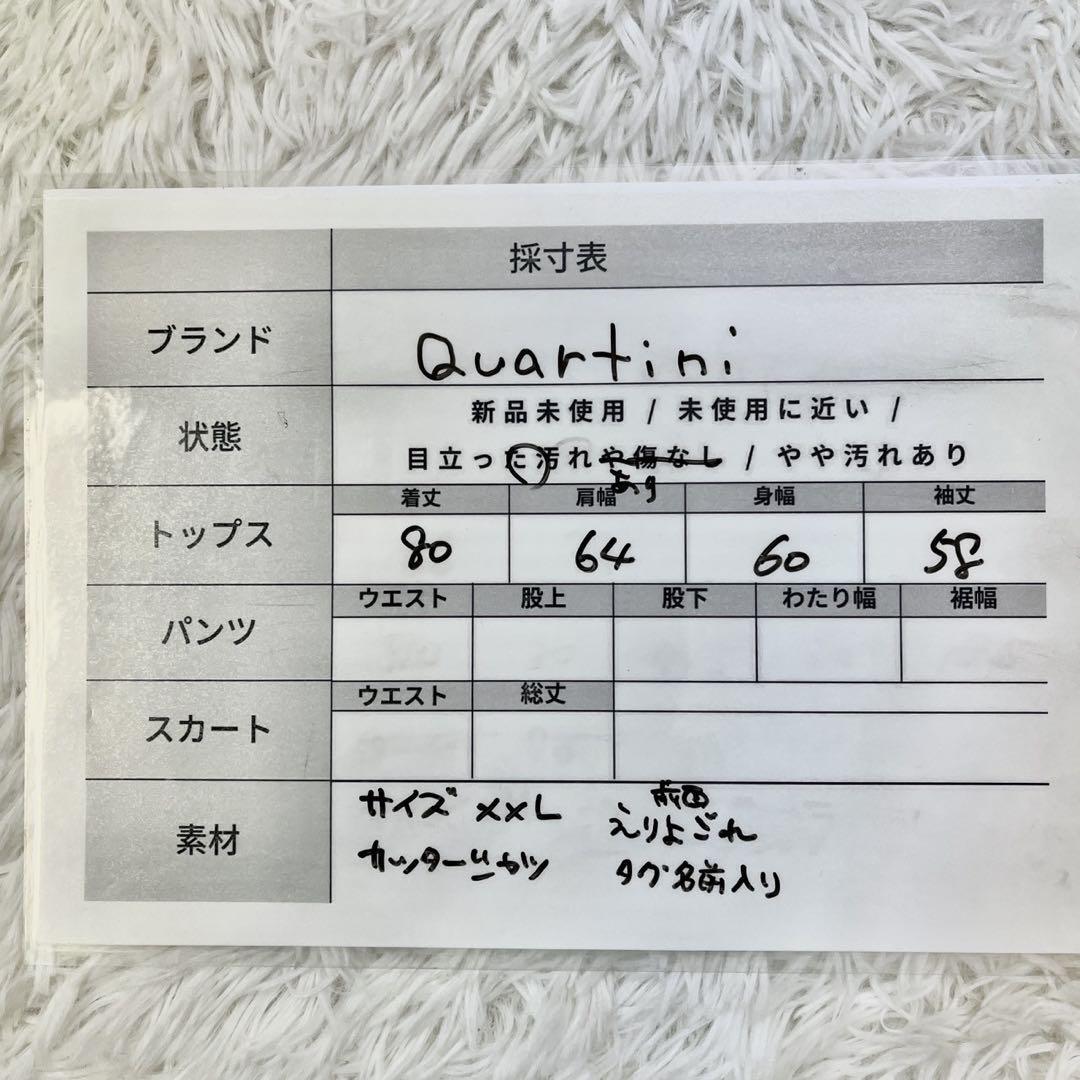 採寸表
ブランド Quartini
状態 新品未使用 / 未使用に近い /
目立った汚れや傷なし / やや汚れあり
あり
トップス 着丈 肩幅 身幅 袖丈
80 64 60 58
パンツ ウエスト 股上 股下 わたり幅 裾幅
スカート ウエスト 総丈
素材 サイズ XXL
カッターシャツ
前面
えりよごれ
タグ名前入り